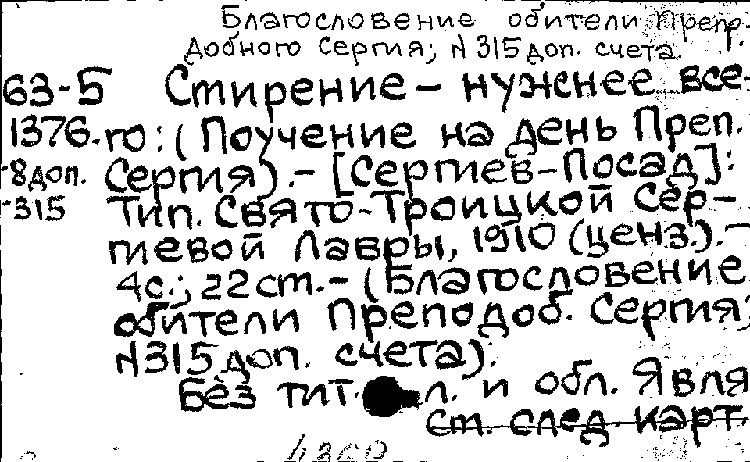 Благословение обители Преп.
добного Сергия; N 315 доп. счета.
63-5 Стирение – нужнее все-
1376. го: (Поучение на день Преп.
-8 доп. Сергия). – [Сергиев-Посад]:
-315 Тип. Свято-Троицкой Сер-
гиевой Лавры, 1910 (ценз.). –
4с.; 22 ст. – (Благословение
обители Преподоб. Сергия;
N 315 доп. счета).
Без тит. л. и обл. Явля
ст. след карт.